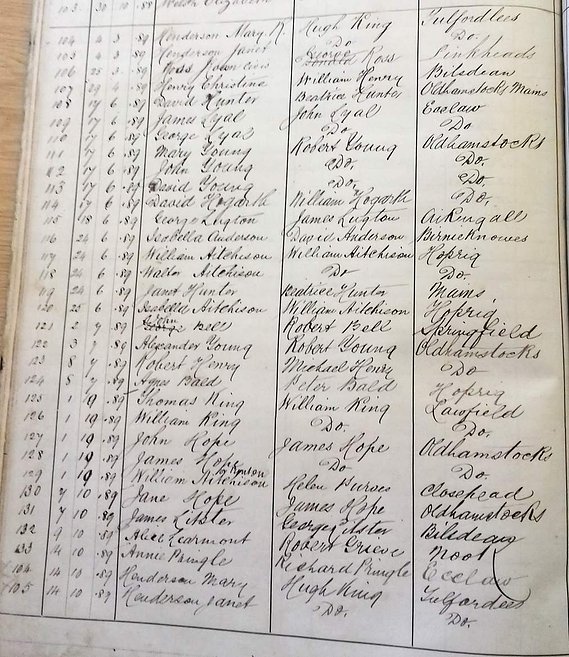 103 30 10 .88 Welsh Elizabeth
104 4 3 .89 Henderson Mary K. Hugh King Fulfordlees
105 4 3 .89 Henderson Janet Do Do.
106 25 3 .89 Ross George Ross Pinkheads
107 29 4 .89 Henry Christina William Henry Bilsdean
108 17 6 .89 David Hunter Beatrice Hunter Oldhamstocks Mains
109 17 6 .89 James Lyal John Lyal Ecclaw
110 17 6 .89 George Lyal Do Do
111 17 6 .89 Mary Young Robert Young Oldhamstocks
112 17 6 .89 John Young Do. Do.
113 17 6 .89 David Young Do. Do.
114 17 6 .89 David Hogarth William Hogarth Do.
115 18 6 .89 George Lugton James Lugton Aikengall
116 24 6 .89 Isabella Anderson David Anderson Birnieknowes
117 24 6 .89 William Aitchison William Aitchison Hoprig
118 24 6 .89 Walter Aitchison Do Do.
119 24 6 .89 Janet Hunter Beatrice Hunter Mains.
120 25 6 .89 Isabella Aitchison William Aitchison Hoprig
121 2 7 .89 John Bell Robert Bell Springfield
122 3 7 .89 Alexander Young Robert Young Oldhamstocks
123 8 7 .89 Robert Henry Michael Henry Do
124 8 7 .89 Agnes Bald Peter Bald Hoprig
125 1 19 .89 Thomas King William King Lawfield
126 1 19 .89 William King Do. Do.
127 1 19 .89 John Hope James Hope Oldhamstocks
128 1 19 .89 James Hope Do Do.
129 1 19 .89 William Aitchison Helen Purves Closehead
130 7 10 .89 Jane Hope James Hope Oldhamstocks
131 7 10 .89 James Litster George Litster Bilsdean
132 9 10 .89 Alice Learmont Robert Grieve Nook
133 14 10 .89 Annie Pringle Richard Pringle Ecclaw
104 14 10 .89 Henderson Mary Hugh King Fulfordlees
105 14 10 .89 Henderson Janet Do. Do.